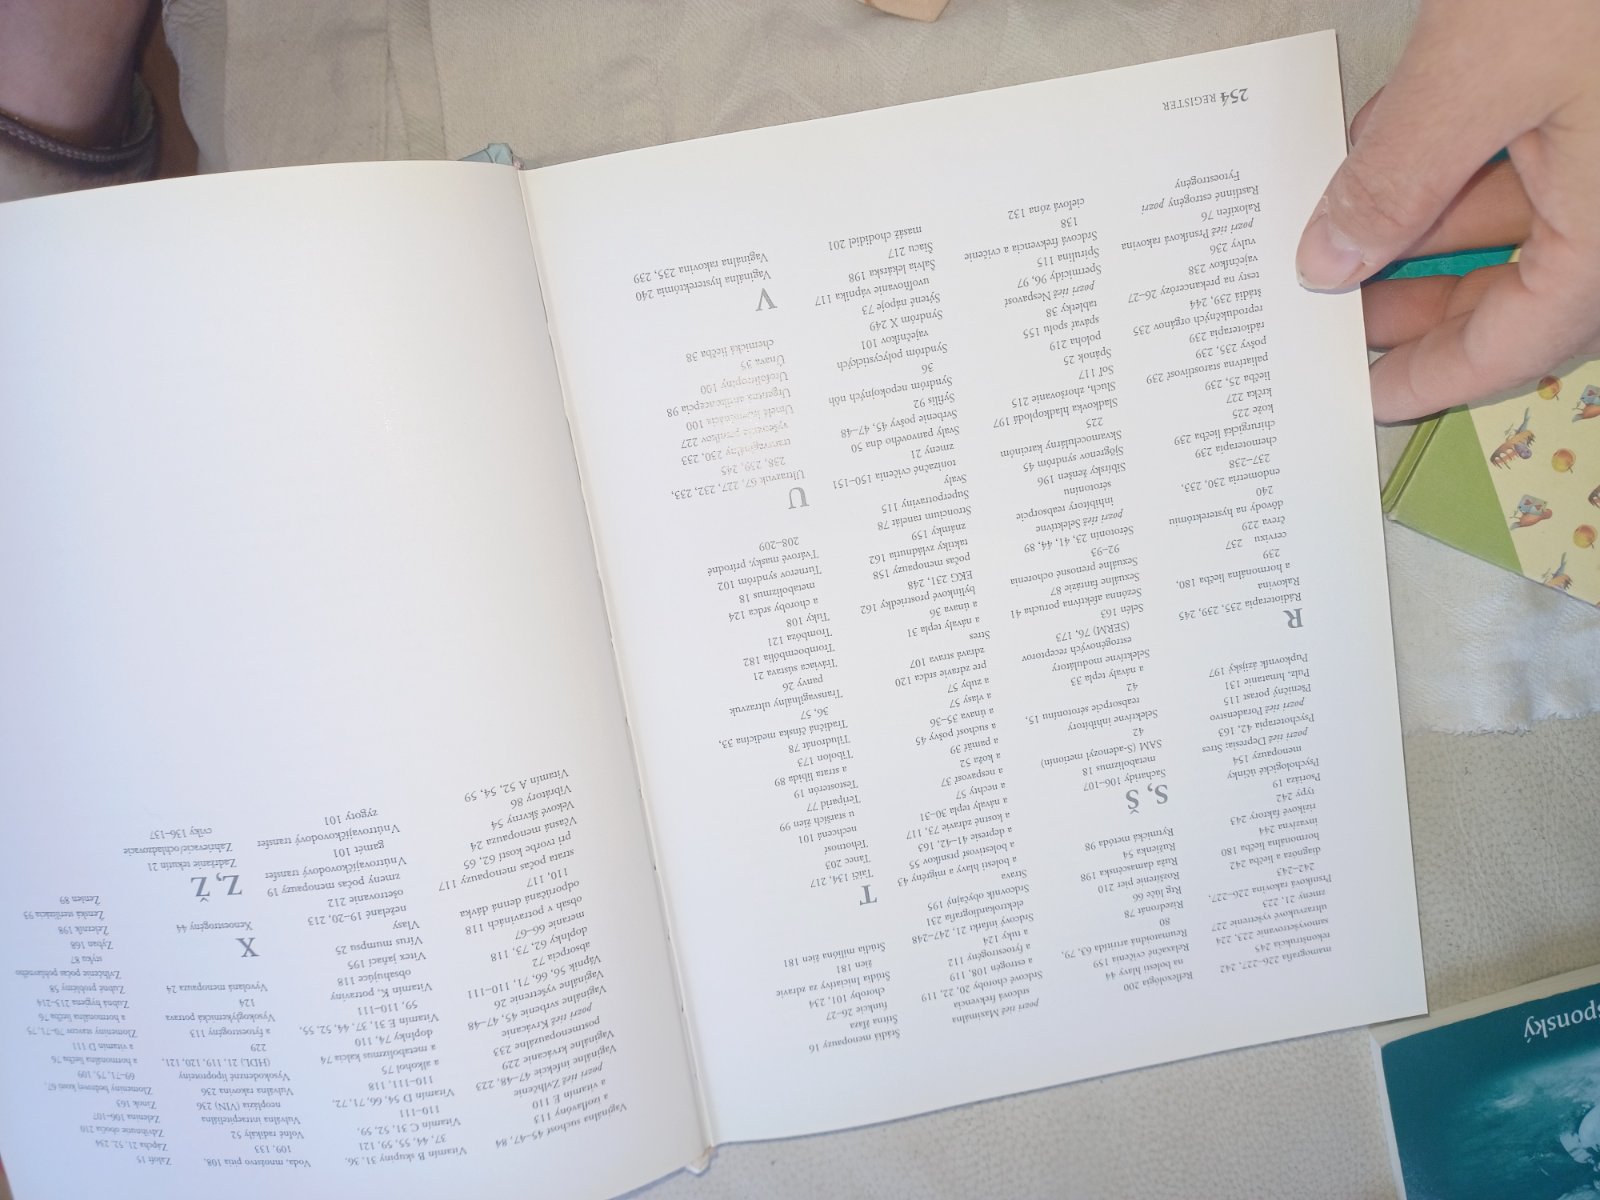 mamografia 226–227, 242,
rekonštrukcia 245
samovyšetrovanie 223, 224
ultrazvukové vyšetrenie 227
zmeny 21, 223
Prsníková rakovina 226–227,
242–243
diagnóza a liečba 242
hormonálna liečba 180
invazívna 244
rizikové faktory 243
typy 242
Psoriáza 19
Psychologické účinky
menopauzy 154
pozri tiež Depresia; Stres
Psychoterapia 42, 163
pozri tiež Poradenstvo
Pšeničný porast 115
Pulz, hmatanie 131
Pupkovník ázijský 197
R
Rádioterapia 235, 239, 245
Rakovina
a hormonálna liečba 180,
239
cervixu 237
čreva 229
dôvody na hysterektómiu
240
endometria 230, 233,
237–238
chemoterapia 239
chirurgická liečba 239
kože 225
krčka 227
liečba 25, 239
paliatívna starostlivosť 239
pošvy 235, 239
rádioterapia 239
reprodukčných orgánov 235
štádiá 239, 244
testy na prekancerózy 26–27
vaječníkov 238
vulvy 236
pozri tiež Prsníková rakovina
Raloxifen 76
Rastlinné estrogény pozri
Fytoestrogény
Reflexológia 200
na bolesti hlavy 44
Relaxačné cvičenia 159
Reumatoidná artritída 63, 79,
80
Rizedronát 78
Rtg lúče 66
Rozšírenie pier 210
Ruža damascénska 198
Ružienka 54
Rytmická metóda 98
S, Š
Sacharidy 106–107
metabolizmus 18
SAM (S-adenozyl metionín)
42
Selektívne inhibítory
reabsorpcie sérotonínu 15,
42
a návaly tepla 33
Selektívne modulátory
estrogénových receptorov
(SERM) 76, 173
Selén 163
Sezónna afektívna porucha 41
Sexuálne fantázie 87
Sexuálne prenosné ochorenia
92–93
Sérotonín 23, 41, 44, 89
pozri tiež Selektívne
inhibítory reabsorpcie
sérotonínu
Sibírsky ženšen 196
Sjögrenov syndróm 45
Skvamocelulárny karcinóm
225
Sladkovka hladkoplodá 197
Sluch, zhoršovanie 215
Soľ 117
Spánok 25
poloha 219
spávať spolu 155
tabletky 38
pozri tiež Nespavosť
Spermicídy 96, 97
Spirulina 115
Srdcová frekvencia a cvičenie
138
cieľová zóna 132
pozri tiež Maximálna
srdcová frekvencia
Srdcové choroby 20, 22, 119
a estrogén 108, 119
a fytoestrogény 112
a tuky 124
Srdcový infarkt 21, 247–248
elektrokardiografia 231
Srdcovník obyčajný 195
Strava
a bolesti hlavy a migrény 43
a bolestivosť prsníkov 55
a depresie 41–42, 163
a kostné zdravie 73, 117
a návaly tepla 30–31
a nechty 57
a nespavosť 37
a koža 52
a pamäť 39
a suchosť pošvy 45
a únava 35–36
a vlasy 57
a zuby 57
pre zdravie srdce 120
zdravá strava 107
Stres
a návaly tepla 31
a únava 36
bylinkové prostriedky 162
EKG 231, 248
počas menopauzy 158
taktiky zvládnutia 162
známky 159
Stroncium ranelát 78
Superpotraviny 115
Svaly
tonizačné cvičenia 150–151
zmeny 21
Svaly panvového dna 50
Svrbenie pošvy 45, 47–48
Syfilis 92
Syndróm nepokojných nôh
36
Syndróm polycystických
vaječníkov 101
Syndróm X 249
Sýtené nápoje 73
uvoľňovanie vápnika 117
Šalvia lekárska 198
Šiacu 217
masáž chodidiel 201
Štádiá menopauzy 16
Štítna žľaza
funkcie 26–27
choroby 101, 234
Štúdia iniciatívy za zdravie
žien 181
Štúdia milióna žien 181
T
Taiči 134, 217,
Tanec 203
Tehotnosť
nechcená 101
u starších žien 99
Teriparid 77
Testosterón 19
a strata libida 89
Tibolon 173
Tiludronát 78
Tradičná čínska medicína 33,
36, 57
Transvaginálny ultrazvuk
panvy 26
Tráviaca sústava 21
Tromboembólia 182
Trombóza 121
Tuky 108
a choroby srdca 124
metabolizmus 18
Turnerov syndróm 102
Tvárové masky, prírodné
208–209
U
Ultrazvuk 67, 227, 232, 233,
238, 239, 245
transvaginálny 230, 233
vyšetrenie prsníkov 227
Uniklá inkontinencia 100
Urgentná antikoncepcia 98
Urofolitropíny 100
Únava 35
chemická liečba 38
V
Vaginálna hysterektómia 240
Vaginálna rakovina 235, 239
254 REGISTER
Vaginálna suchosť 45–47, 84
a izoflavóny 113
a vitamín E 110
pozri tiež Zvlhčenie
Vaginálne infekcie 47–48, 223
Vaginálne krvácanie 229
postmenopauzálne 235
pozri tiež Krvácanie
Vaginálne svrbenie 45, 47–48
Vaginálne vyšetrenie 26
Vápnik 56, 66, 71, 110–111
absorpcia 72
doplnky 62, 73, 118
meranie 66–67
obsah v potravinách 118
odporúčaná denná dávka
110, 117
strata počas menopauzy 117
pri tvorbe kostí 62, 65
Včasná menopauza 24
Vekové škvrny 54
Vibrátory 86
Vitamín A 52, 54, 59
Vitamín B skupiny 31, 36,
37, 44, 55, 59, 121
Vitamín C 31, 52, 59,
110–111
Vitamín D 54, 66, 71, 72,
110–111, 118
a alkohol 75
a metabolizmus kalcia 74
doplnky 74, 110
Vitamín E 31, 37, 44, 52, 55,
59, 110–111
Vitamín K, potraviny
obsahujúce 118
Vitex jahací 195
Vírus mumpsu 25
Vlasy
neželané 19–20, 213,
ošetrovanie 212
zmeny počas menopauzy 19
Vnútrovajíčkovodový transfer
gamét 101
Vnútrovajíčkovodový transfer
zygoty 101
Voda, množstvo pitia 108,
109, 133
Voľné radikály 52
Vulválna intraepiteliálna
neoplázia (VIN) 236
Vulválna rakovina 236
Vysokodenzné lipoproteíny
(HDL) 21, 119, 120, 121,
229
a fytoestrogény 113
Vysokoglykemická potrava
124
Vyvolaná menopauza 24
X
Xenoestrogény 44
Z, Ž
Zadržanie tekutín 21
Zahrievacie/ochladzovacie
cviky 136–137
Zaloft 15
Zápcha 21, 52, 234
Zdvihnutie obočia 210
Zelenina 106–107
Zinok 163
Zlomeniny bedrovej kosti 67,
69–71, 75, 109
a hormonálna liečba 76
a vitamín D 111
Zlomeniny stavcov 70–71, 75
a hormonálna liečba 76
Zubná hygiena 213–214
Zubné problémy 58
Zvlhčenie počas pohlavného
styku 87
Zyban 168
Železník 198
Ženská sterilizácia 93
Ženšen 89
sponský